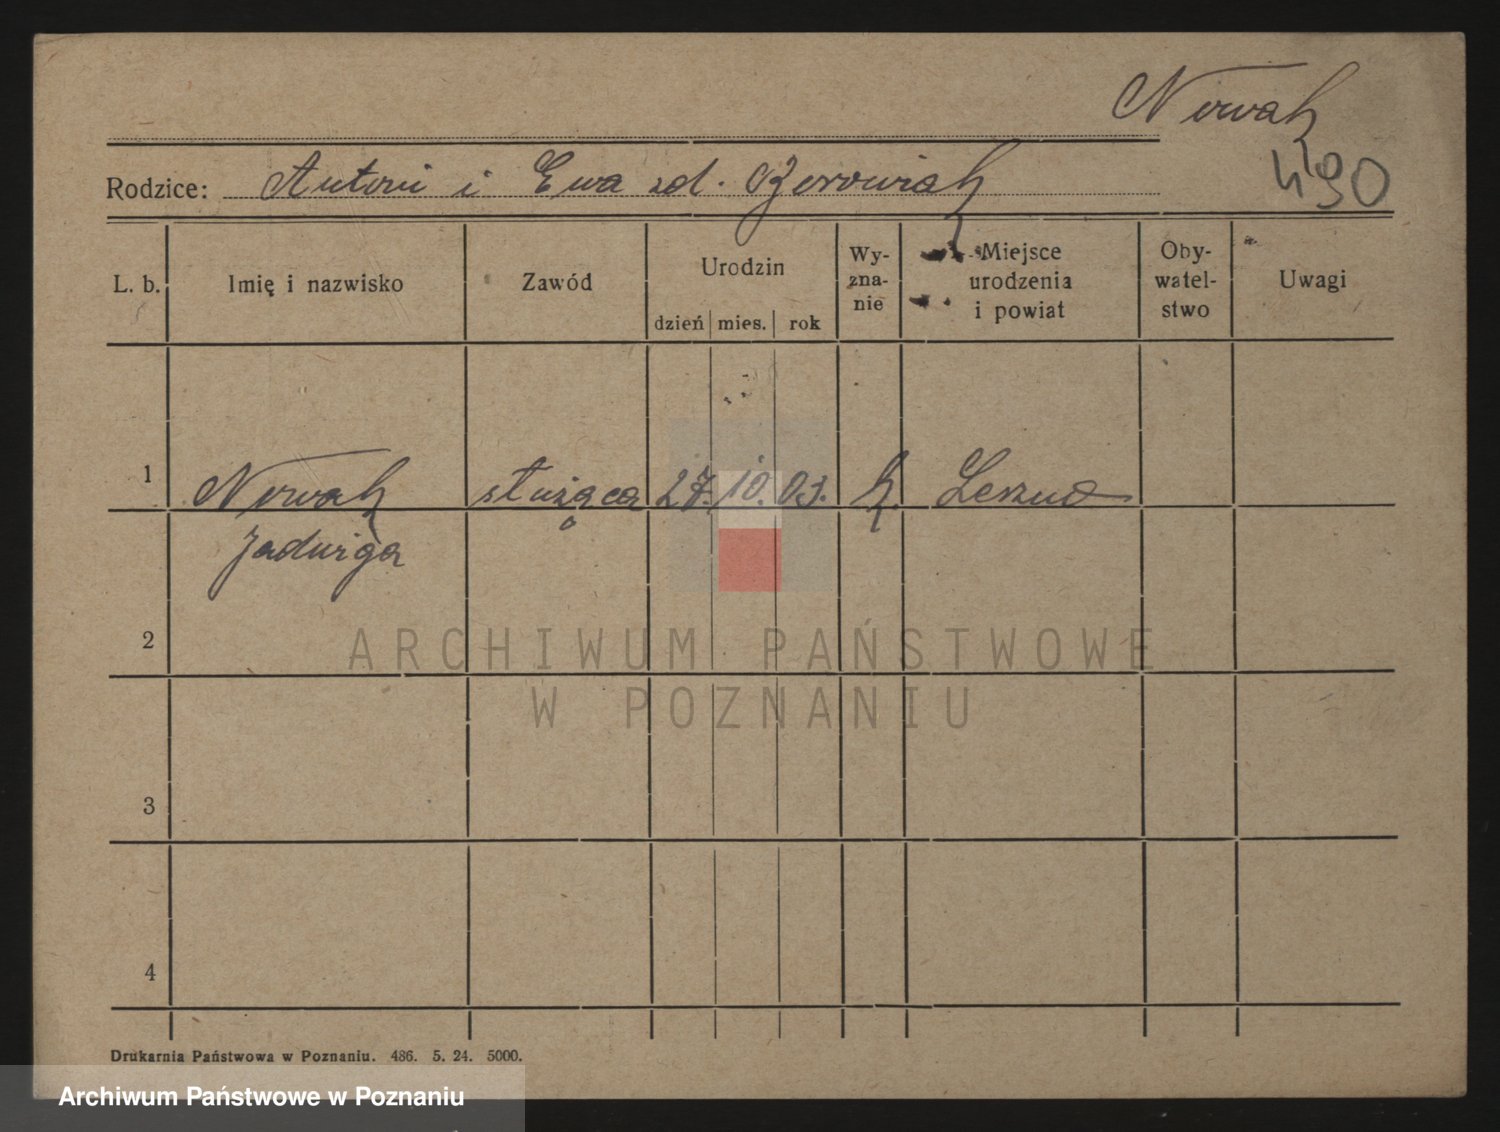 Nowak
490
Rodzice: Antoni i Ewa zd.
L. b. Imię i nazwisko Zawód Urodzin dzień mies. rok Wy-zna-nie Miejsce urodzenia i powiat Oby-watel-stwo Uwagi
1 Nowak służąca 27. 10. 03. k. Leszno
Jadwiga
2
ARCHIWUM PAŃSTWOWE
W POZNANIU
3
4
Drukarnia Państwowa w Poznaniu. 486. 5. 24. 5000.
Archiwum Państwowe w Poznaniu